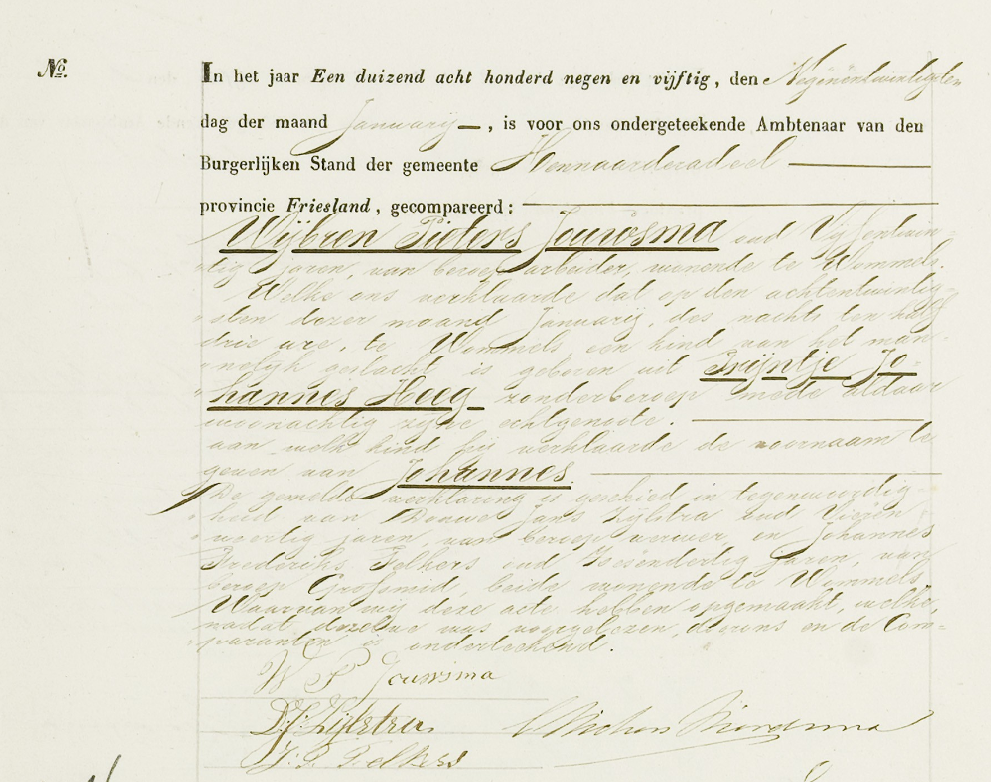 No. In het jaar Een duizend acht honderd negen en vijftig, den Negenentwintigsten
dag der maand Januarij —, is voor ons ondergeteekende Ambtenaar van den
Burgerlijken Stand der gemeente Hennaarderadeel
provincie Friesland, gecompareerd:
Wijbren Pieters Jouwsma oud Vijfentwin-
tig jaren, van beroep arbeider, wonende te Wommels.
Welke ons verklaarde dat op den achtentwintig-
sten dezer maand Januarij, des nachts ten half
drie ure, te Wommels een kind van het man-
nelijk geslacht is geboren uit Trijntje Jo-
hannes Heeg zonder beroep mede aldaar
woonachtig zijne echtgenoote.
aan welk kind hij verklaarde de voornaam te
geven van Johannes.
De gemelde verklaring is geschied in tegenwoordig-
heid van Douwe Jans Zijlstra oud Vierën-
veertig jaren, van beroep verwer en Johannes
Frederiks Felkers oud Zesëndertig jaren, van
beroep Grofsmid, beide wonende te Wommels.
Waarvan wij deze acte hebben opgemaakt, welke,
nadat dezelve was voorgelezen, door ons en de Com-
paranten is onderteekend.
W P Jouwsma
D. J. Zijlstra
J. F. Felkers